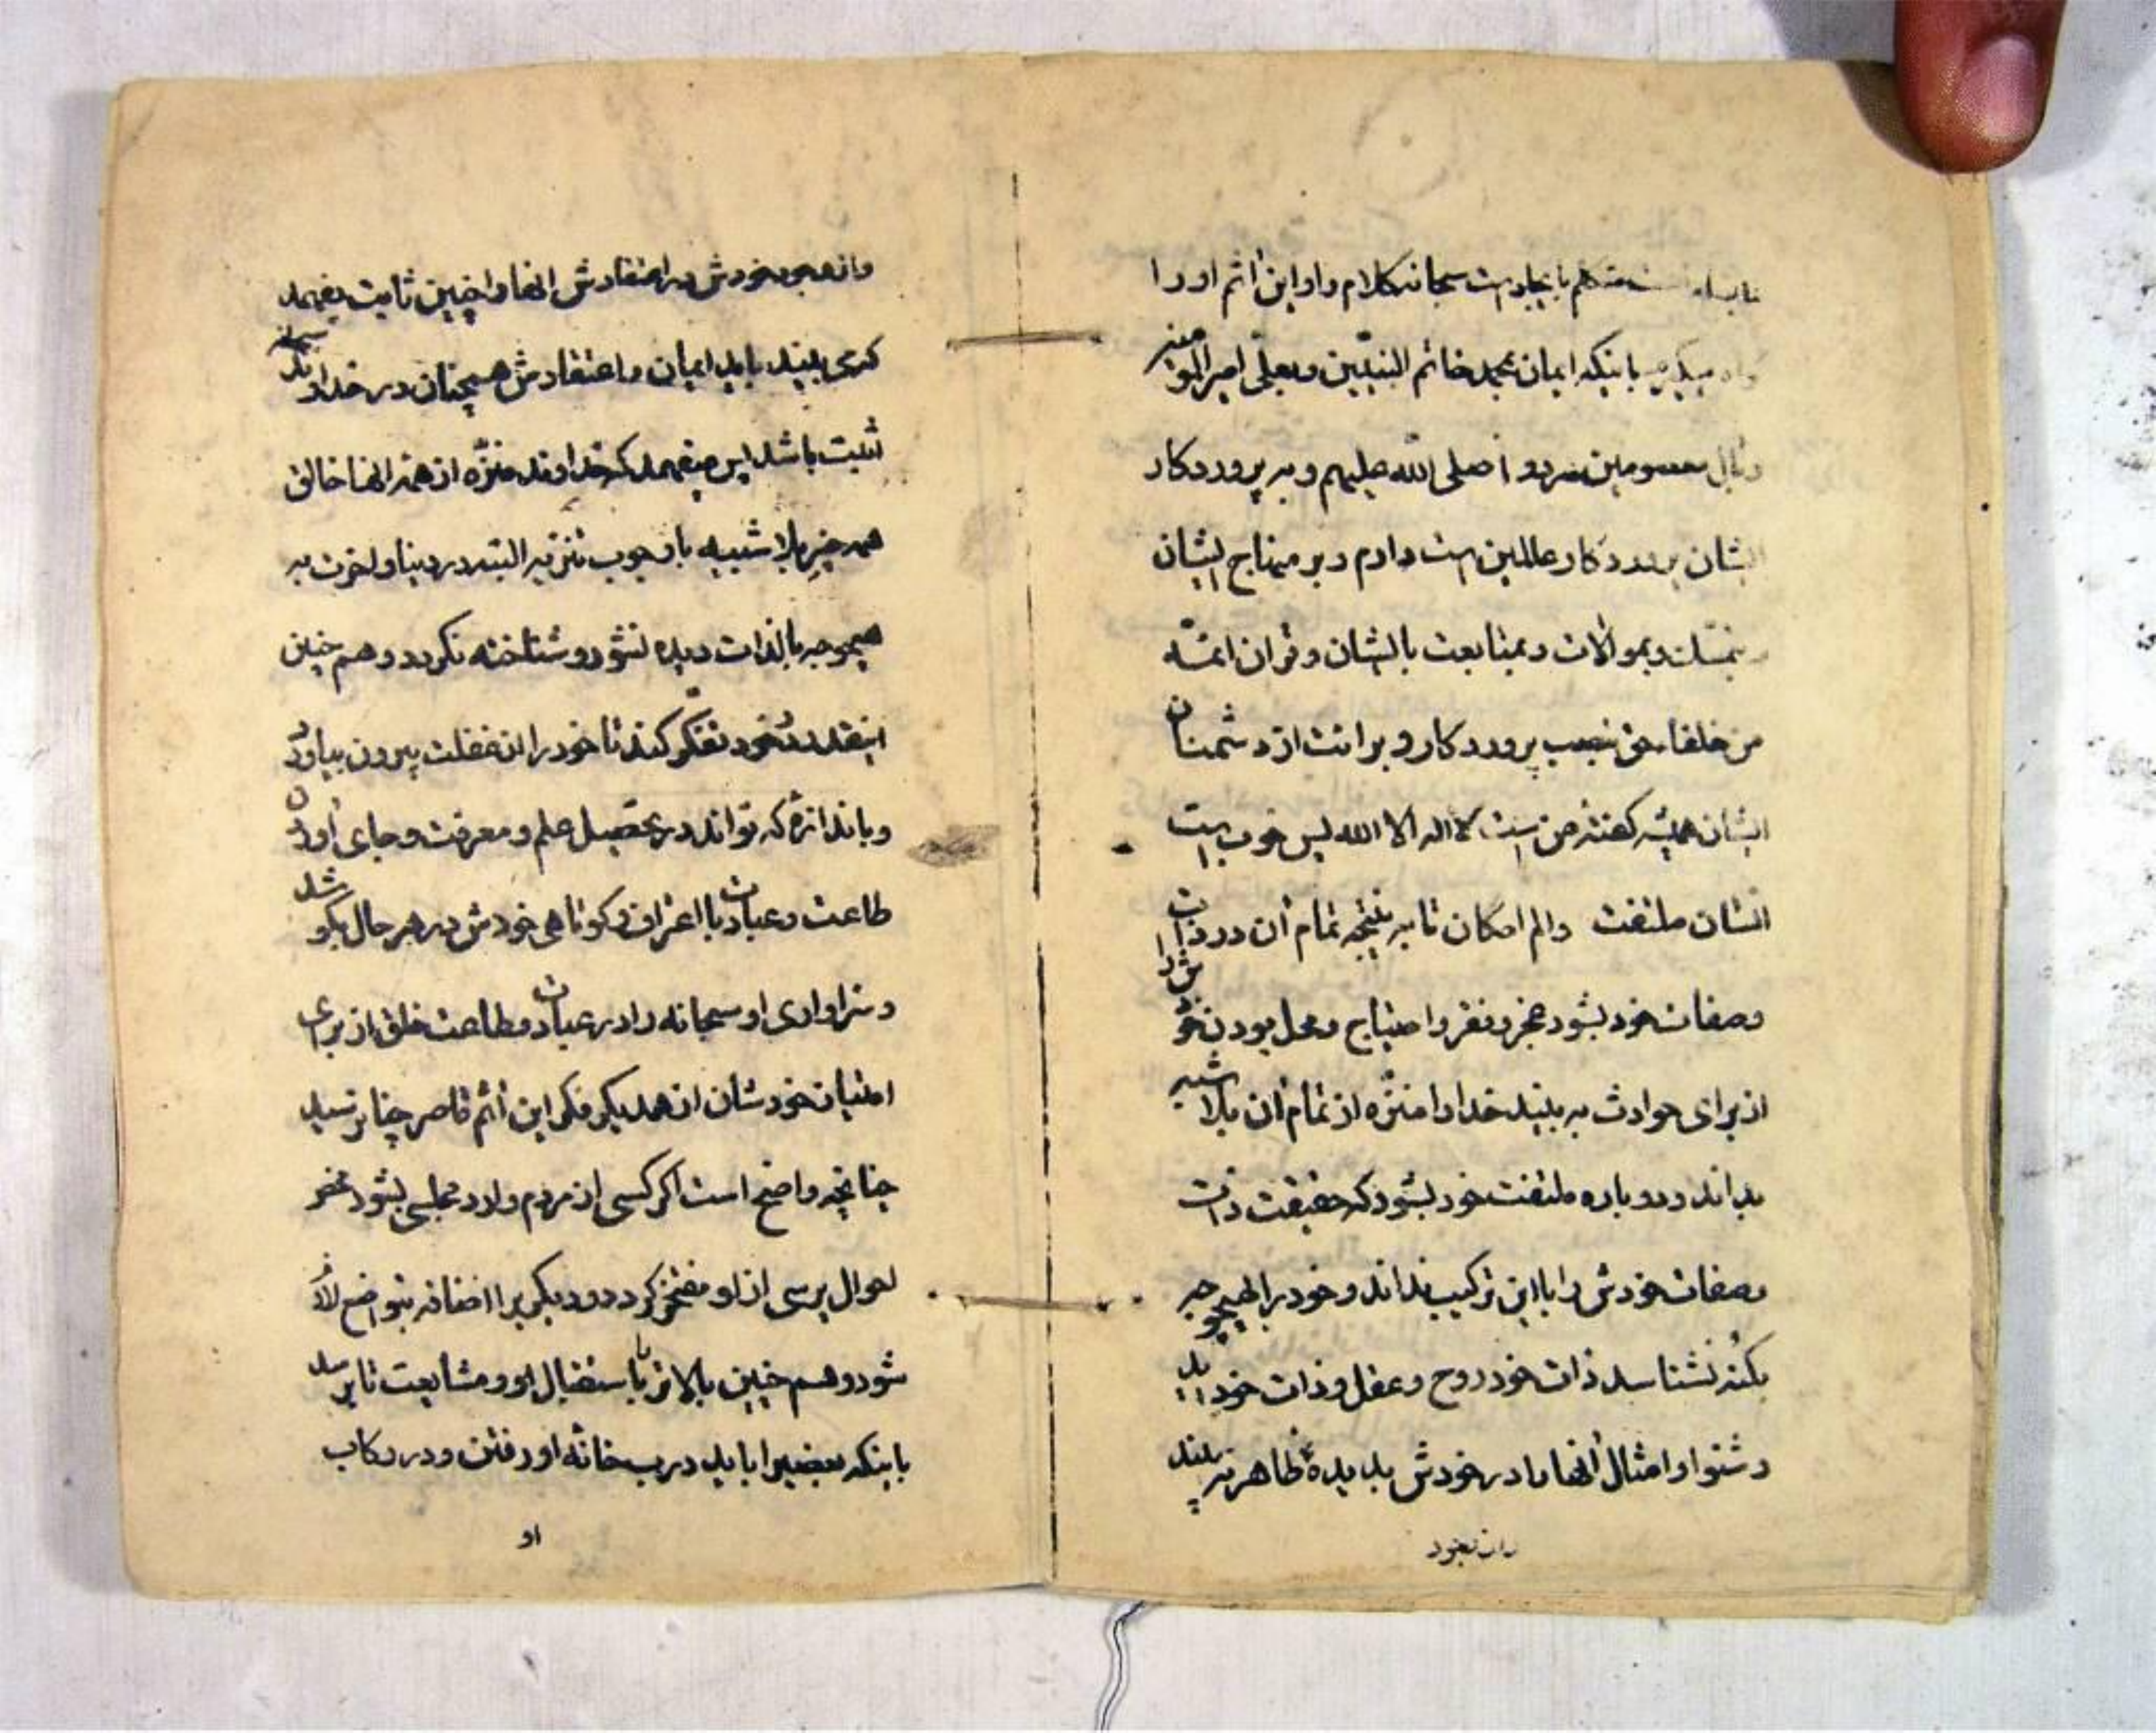 است متکلم بایجاد است سبحانه کلام را و این اثم او را
میگیرد باینکه ایمان بمحمد خاتم النبیین و بعلی امیر المؤمنین
و بآل معصومین هر دو صلی الله علیهم و به پروردکار
ایشان پروردکار عالمین است دارم و بر منهاج ایشان
و بموالات و بمتابعت بایشان و قران ائمه
من خلفاء حق نصب پروردکار و برائت از دشمنان
ایشان همیشه کفته من است لا اله الا الله پس خوب است
انسان ملتفت والم امکان تا به نتیجه تمام آن در ذات
وصفات خود بشود عجز و فقر و احتیاج و محل بودن خودش را
از برای حوادث به بیند خدا را منزّه از تمام آن بلا شبیه
بداند و دوباره ملتفت خود بشود که حقیقت ذات
وصفات خودش را با این ترکیب نداند و خود را بهیچوجه
بکُنه نشناسد ذات خود روح و عقل و ذات خود باید
و شنوا و امثال آنها را در خودش بدیدهٔ ظاهر نه بیند
وانه بخود
خودش در اعتقادش انها را چنین ثابت بفهمد
کری بیند باید ایمان و اعتقادش همچنان در خداوند سبحانه
ثابت باشد پس میفهمد که خداوند منزّه از همه انها خالق
همه چیز بلا شبیه با وجوب تنزیه البته در دنیا و اخرت به
هیچوجه بالذات دیده نشود و شناخته نکردد و هم چنین
اینقدر در خود تفکّر کند تا خود را از غفلت بیرون بیاورد
و باندازهٔ که تواند در تحصیل علم و معرفت و جای آوردن
طاعت و عبادت با اعتراف و کوتاهی خودش در هر حال بکوشد
و سزاواری او سبحانه را در عبادت و طاعت خلق از برای
امتیاز خودشان از همدیکر فکر این اثم قاصر چنابر رسید
چنانچه واضح است اکر کسی از مردم وارد مجلسی بشود مختصر
احوال پرسی از او مفتخر کردد و دیکریرا اضافه بتواضع لازم
شود و هم چنین بالاتر تا باستقبال او و مشایعت تا برسد
باینکه بعضیرا باید درب خانه او رفتن و در رکاب
او